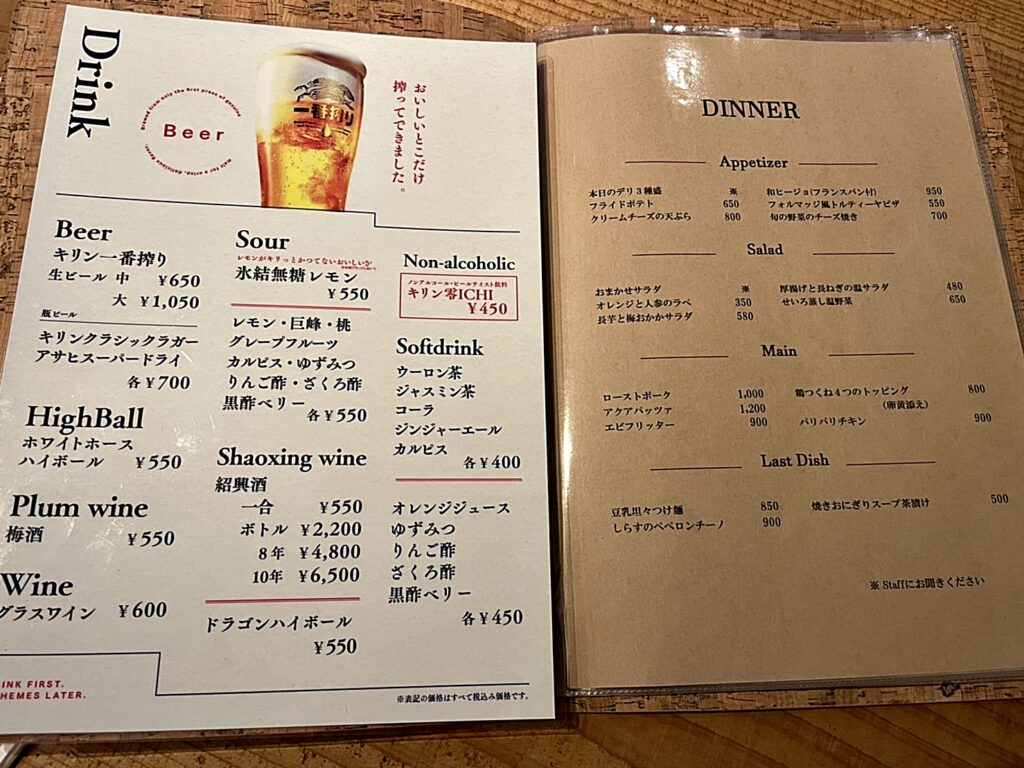 Drink
Brewed from only the first press of genuine
Beer
malt for a crisp, delicious flavor.
一番搾り
おいしいとこだけ
搾ってできました。
Beer
キリン一番搾り
生ビール 中 ¥650
大 ¥1,050
瓶ビール
キリンクラシックラガー
アサヒスーパードライ
各¥700
HighBall
ホワイトホース
ハイボール ¥550
Plum wine
梅酒 ¥550
Wine
グラスワイン ¥600
INK FIRST.
HEMES LATER.
Sour
レモンがキリっとかつてないおいしいさ
氷結無糖レモン
¥550
レモン・巨峰・桃
グレープフルーツ
カルピス・ゆずみつ
りんご酢・ざくろ酢
黒酢ベリー 各¥550
Shaoxing wine
紹興酒
一合 ¥550
ボトル ¥2,200
8年 ¥4,800
10年 ¥6,500
ドラゴンハイボール
¥550
Non-alcoholic
ノンアルコール・ビールテイスト飲料
キリン零ICHI
¥450
Softdrink
ウーロン茶
ジャスミン茶
コーラ
ジンジャーエール
カルピス
各¥400
オレンジジュース
ゆずみつ
りんご酢
ざくろ酢
黒酢ベリー
各¥450
※表記の価格はすべて税込み価格です。
DINNER
Appetizer
本日のデリ3種盛 ※
フライドポテト 650
クリームチーズの天ぷら 800
和ヒージョ(フランスパン付) 950
フォルマッジ風トルティーヤピザ 550
旬の野菜のチーズ焼き 700
Salad
おまかせサラダ ※
オレンジと人参のラペ 350
長芋と梅おかかサラダ 580
厚揚げと長ねぎの温サラダ 480
せいろ蒸し温野菜 650
Main
ローストポーク 1,000
アクアパッツァ 1,200
エビフリッター 900
鶏つくね4つのトッピング 800
(卵黄添え)
パリパリチキン 900
Last Dish
豆乳坦々つけ麺 850
しらすのペペロンチーノ 900
焼きおにぎりスープ茶漬け 500
※ Staffにお聞きください